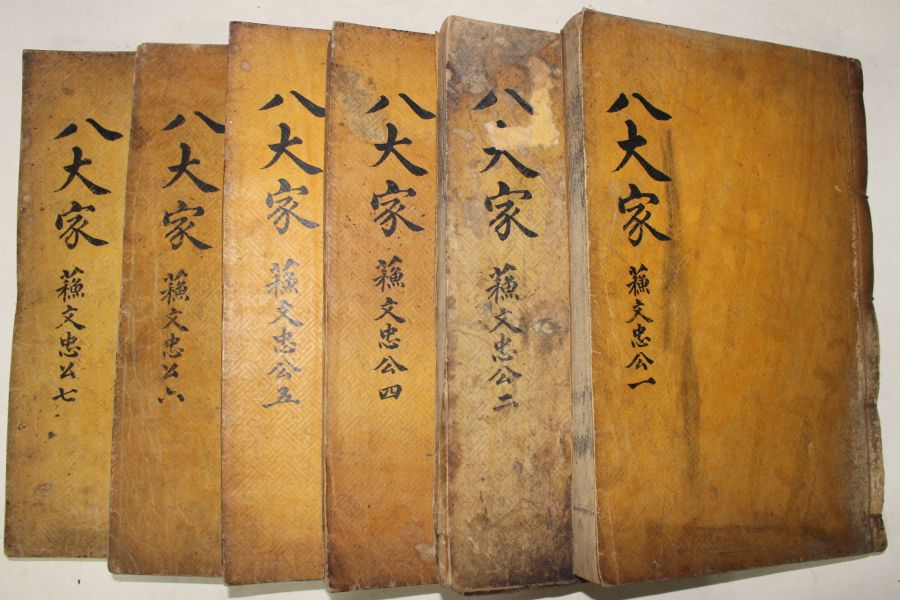 八大家 蘓文忠公一
八大家 蘓文忠公二
八大家 蘓文忠公四
八大家 蘓文忠公五
八大家 蘓文忠公六
八大家 蘓文忠公七